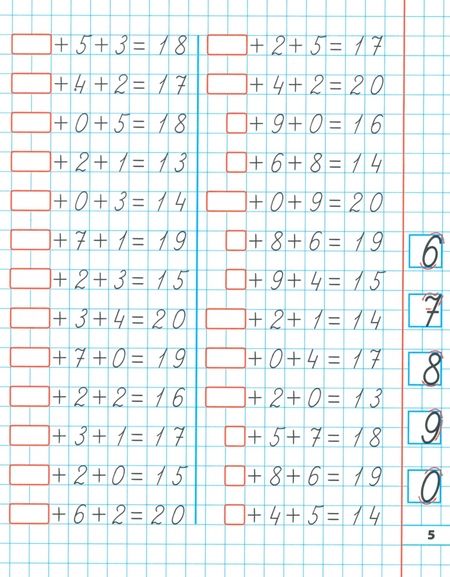 +5+3=18
+4+2=17
+0+5=18
+2+1=13
+0+3=14
+7+1=19
+2+3=15
+3+4=20
+7+0=19
+2+2=16
+3+1=17
+2+0=15
+6+2=20
+2+5=17
+4+2=20
+9+0=16
+6+8=14
+0+9=20
+8+6=19
+9+4=15
+2+1=14
+0+4=17
+2+0=13
+5+7=18
+8+6=19
+4+5=14
6
7
8
9
0
5